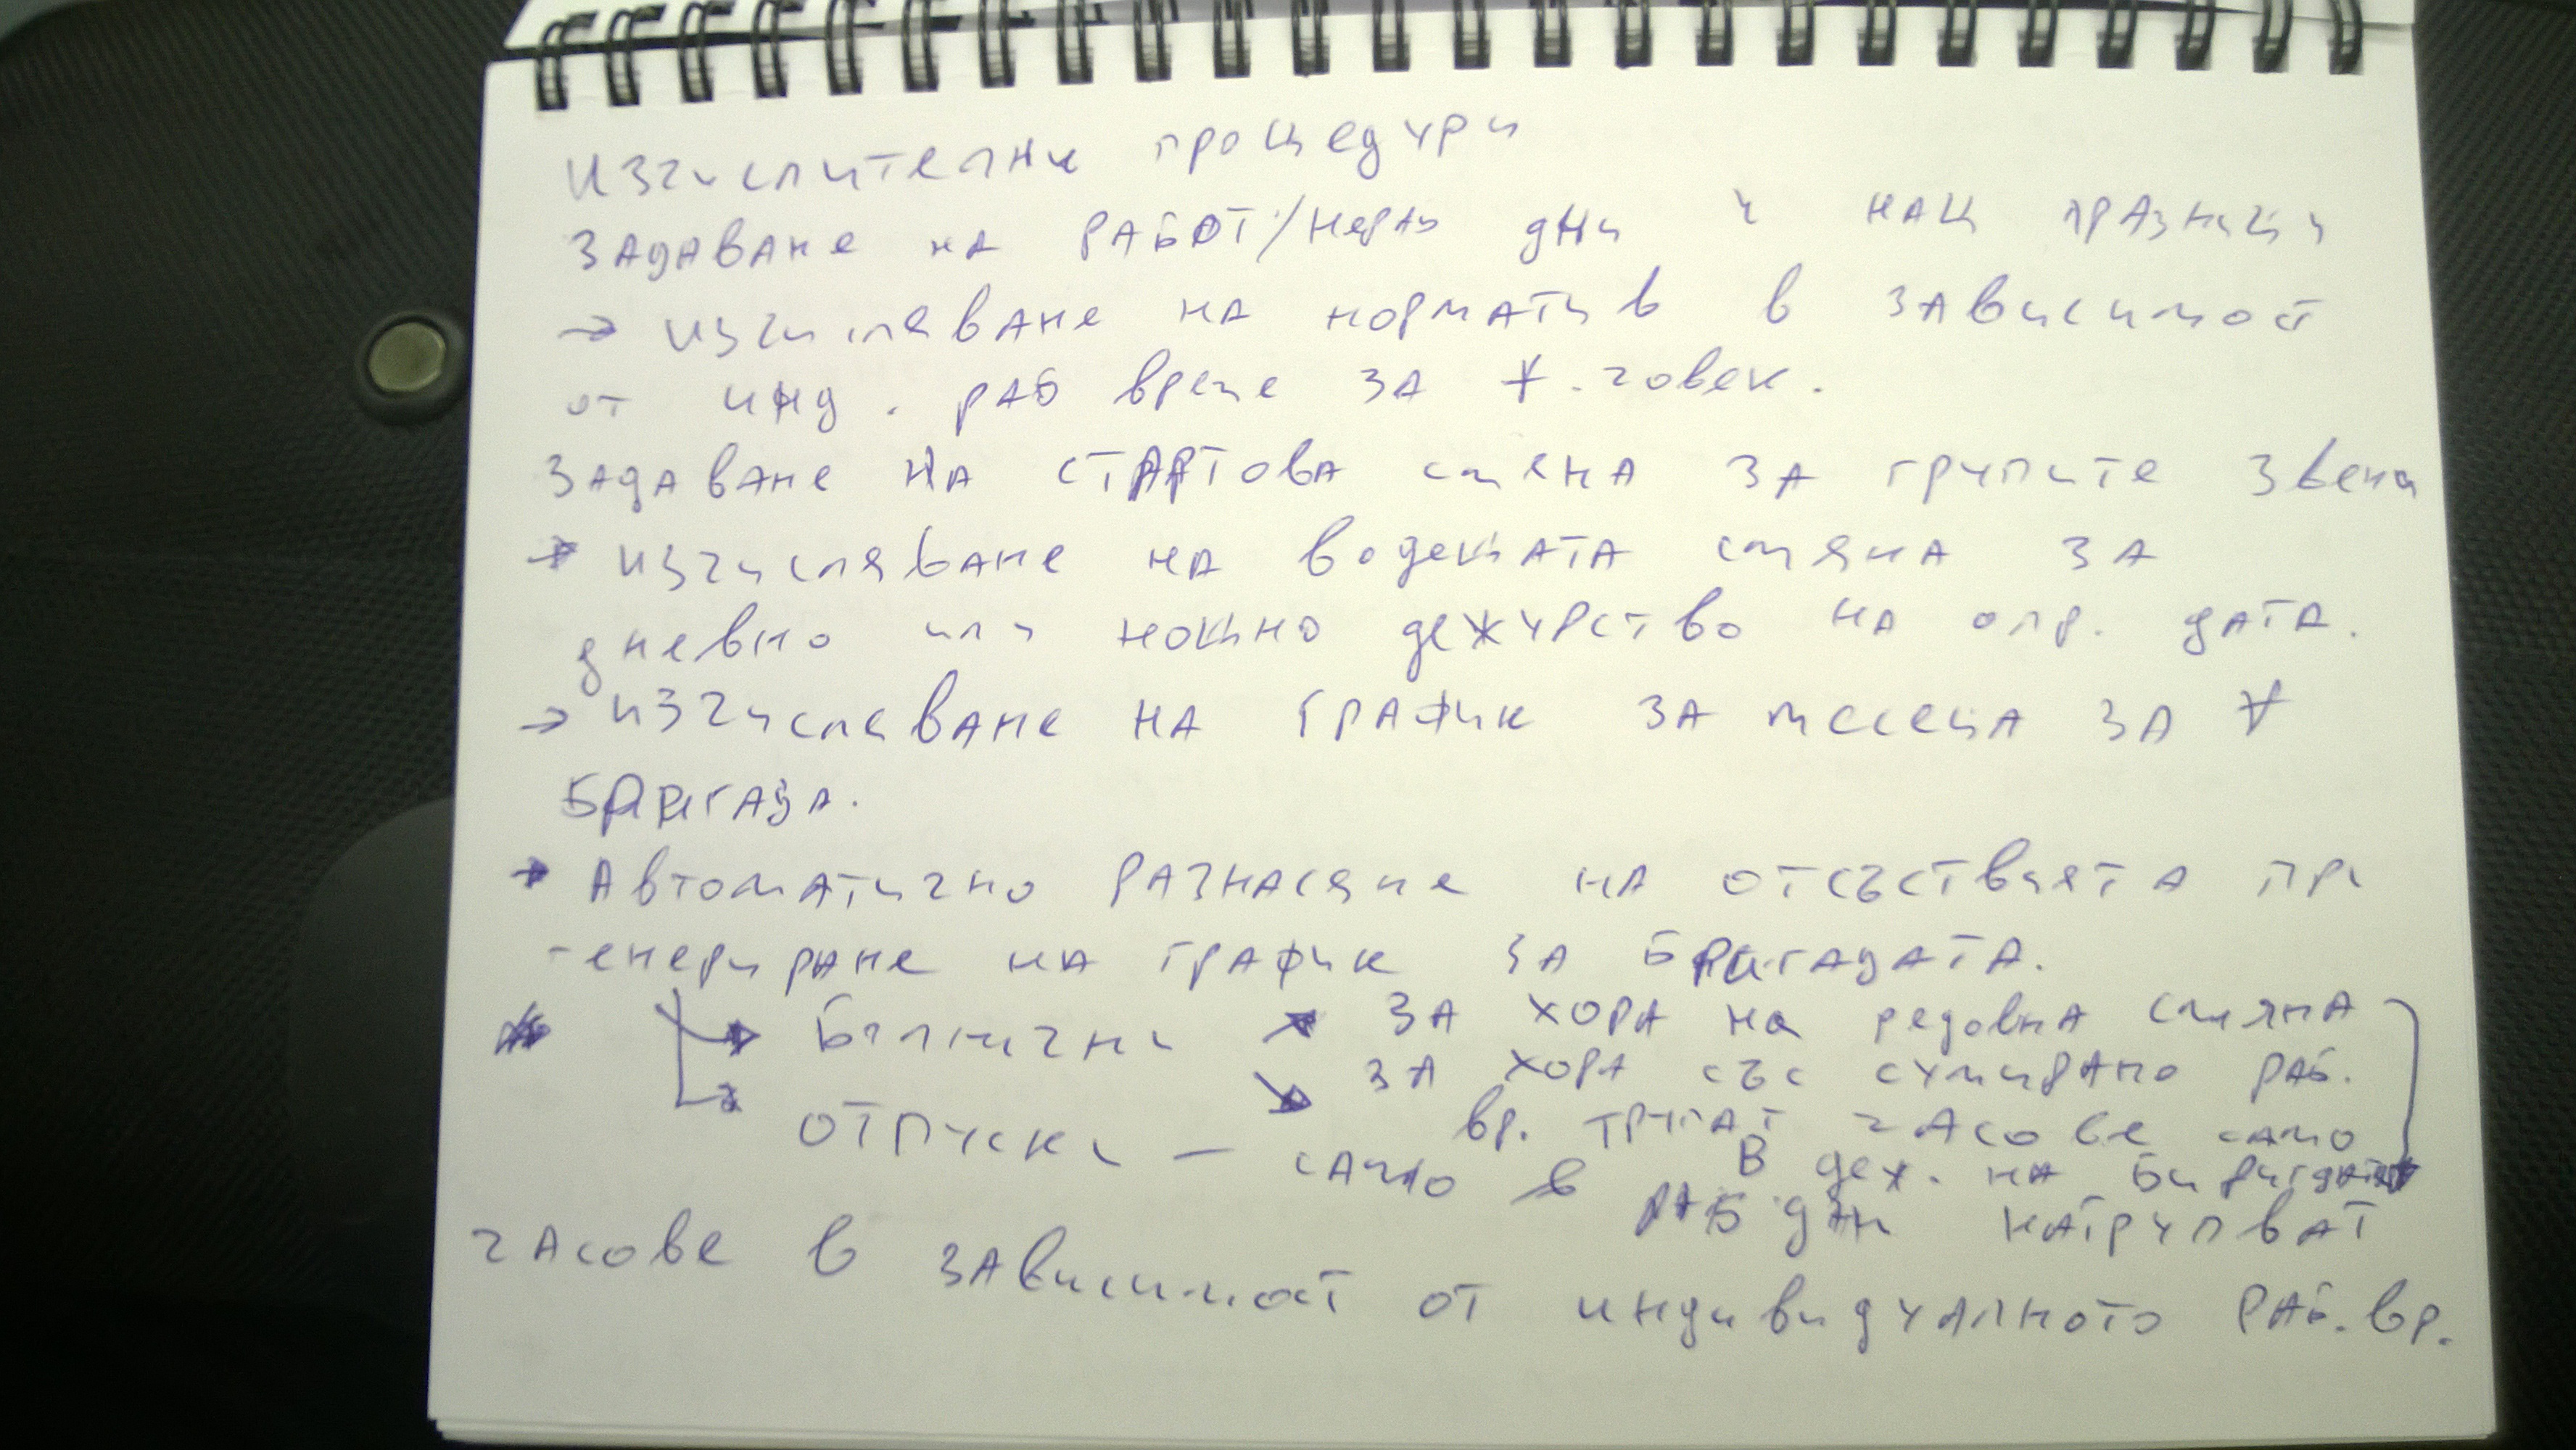 Изчислителни процедури
Задаване на работ/нераб дни и нац празници
→ изчисляване на норматив в зависимост
от инд. раб време за ∀. човек.
Задаване на стартова смяна за групите звена
→ изчисляване на водещата смяна за
дневно или нощно дежурство на опр. дата.
→ изчисляване на график за месеца за ∀
бригада.
→ Автоматично разнасяне на отсъствията при
генериране на график за бригадата.
→ Болнични → за хора на редовна смяна
→ за хора със сумирано раб.
вр. трупат часове само
в деж. на бригадата
→ отпуски – само в раб дни натрупват
часове в зависимост от индивидуалното раб. вр.